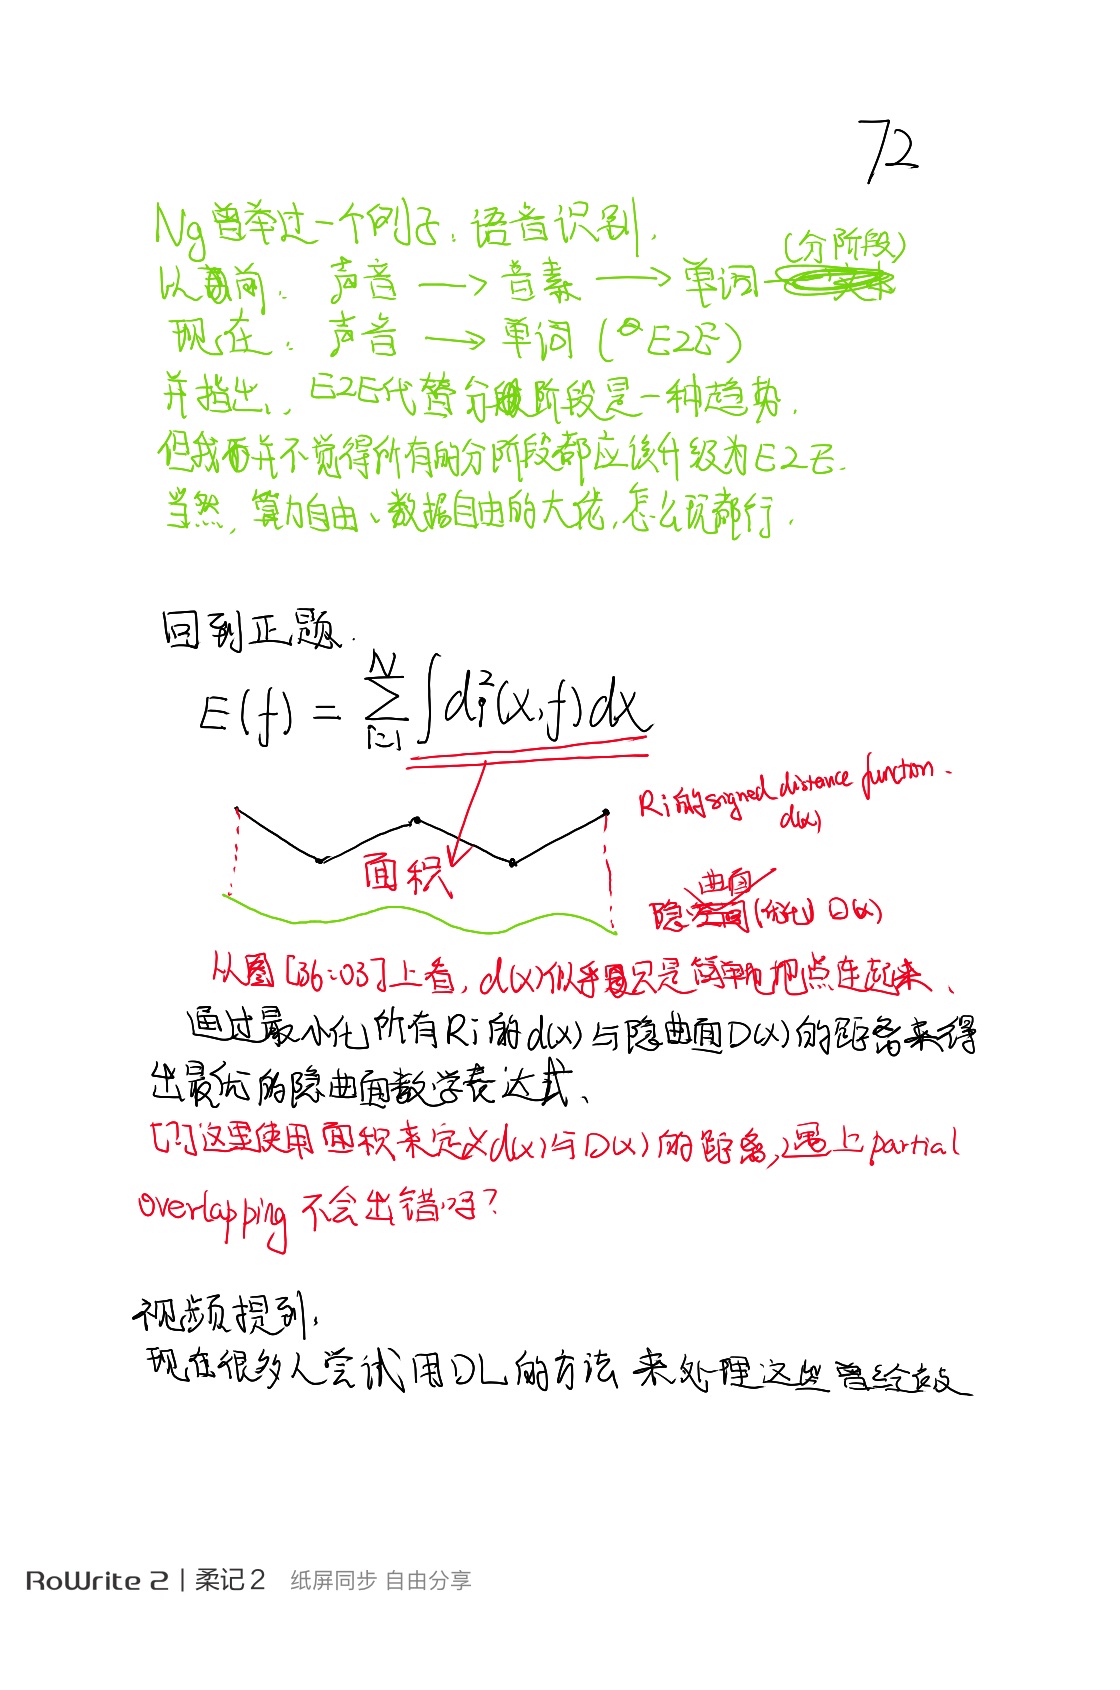 72
Ng曾举过一个例子:语音识别.
(分阶段)
从前: 声音 → 音素 → 单词
现在: 声音 → 单词 (E2E)
并指出, E2E代替分阶段是一种趋势.
但我并不觉得所有的分阶段都应该升级为E2E.
当然, 算力自由、数据自由的大佬, 怎么玩都行.
回到正题.
E(f) = ∑_{i=1}^{N} ∫ d_i^2(x,f) dx
Ri的signed distance function.
d(x)
面积
曲面
隐 (优化) D(x)
从图[36:03]上看, d(x)似乎只是简单地把点连起来.
通过最小化所有Ri的d(x)与隐曲面D(x)的距离来得
出最优的隐曲面数学表达式.
[?]这里使用面积来定义d(x)与D(x)的距离,遇上partial
overlapping 不会出错吗?
视频提到,
现在很多人尝试用DL的方法来处理这些曾给
RoWrite 2 | 柔记 2 纸屏同步 自由分享